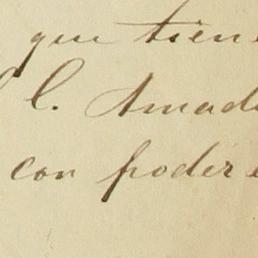 que tiene
C. Amad
con poder